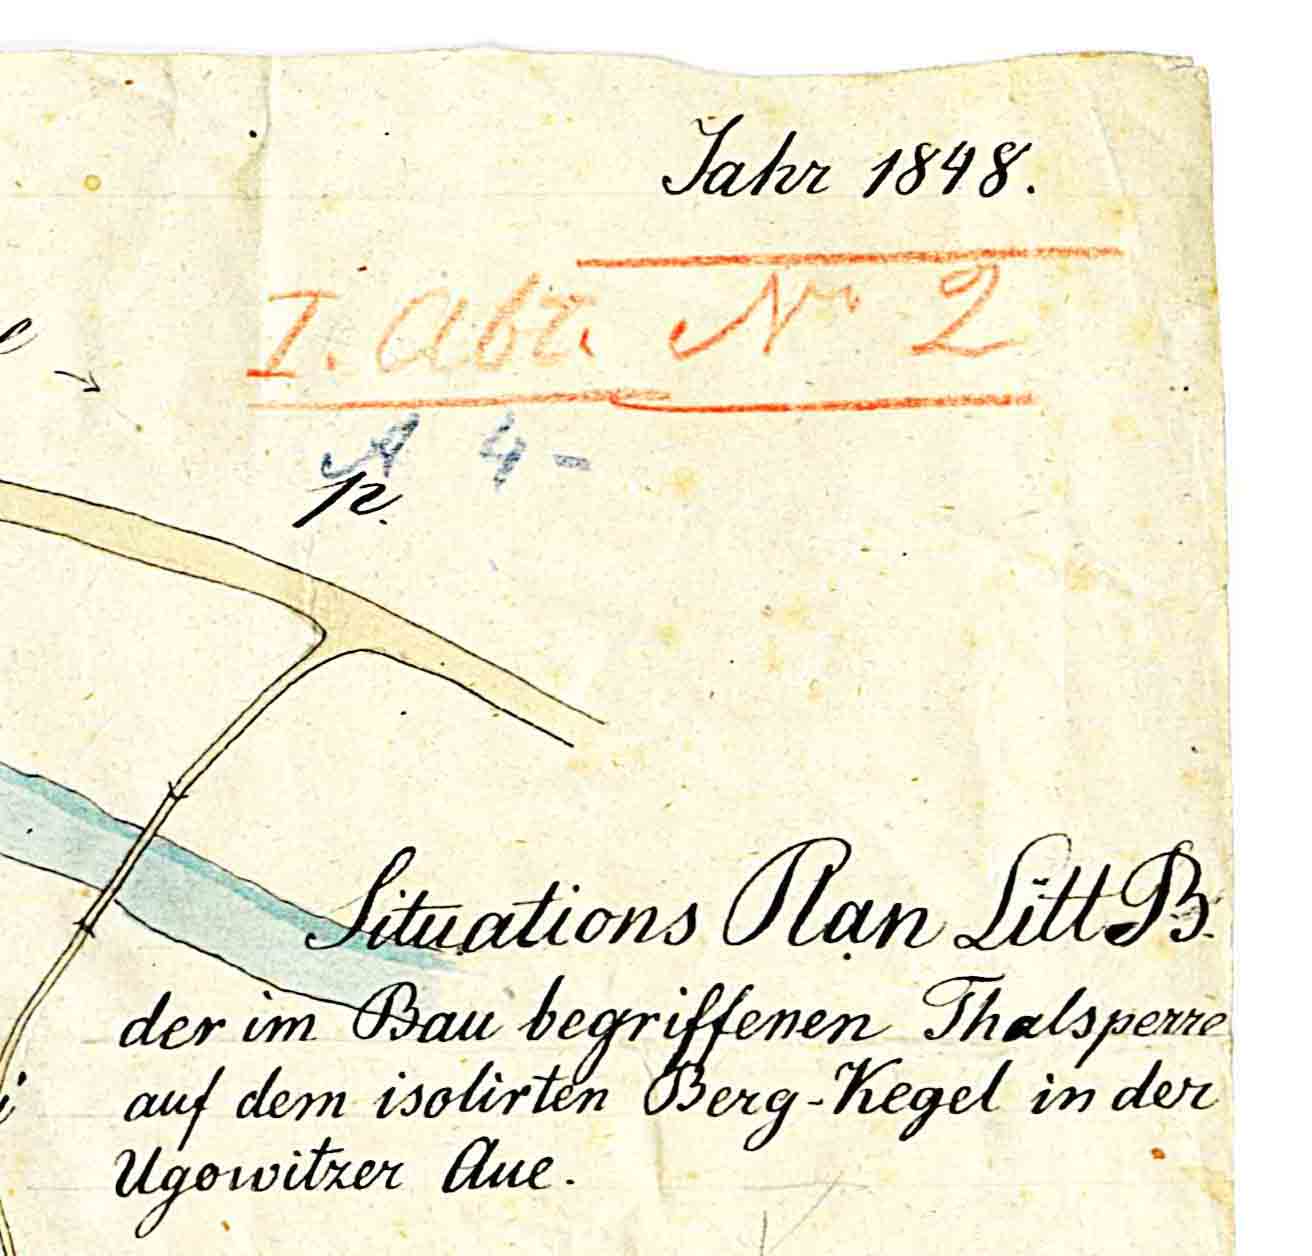 Jahr 1848.
I. Abt. Nr 2
A 4-
p.
Situations Plan Litt B.
der im Bau begriffenen Thalsperre
auf dem isolirten Berg-Kegel in der
Ugowitzer Aue.